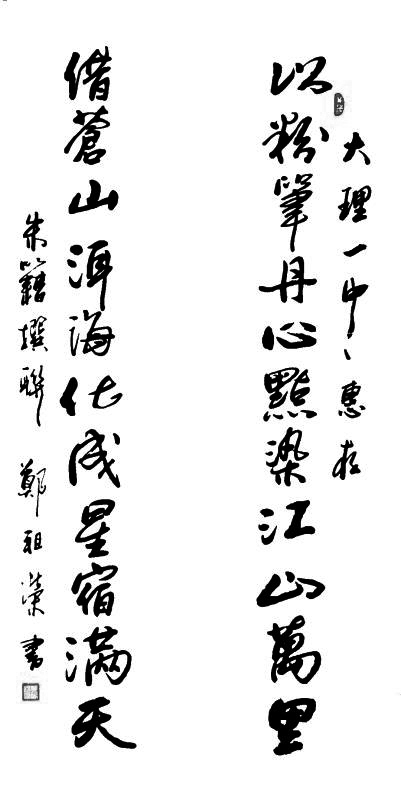 大理一中、惠存
以粉筆丹心點染江山萬里
借蒼山洱海化成星宿滿天
朱籍撰聯 鄭祖榮書